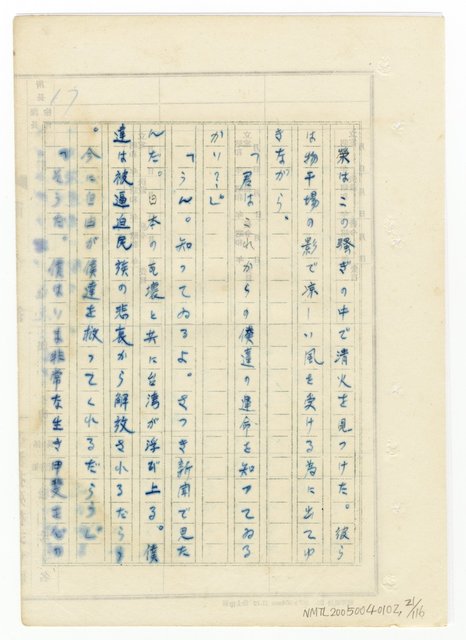 17
榮はこの騒ぎの中で清火を見つけた。彼ら
は物干場の影で凉しい風を受ける為に出てゆ
きながら、
「君はこれからの僕達の運命を知ってゐる
かい？」
「うん。知ってゐるよ。さつき新聞で見た
んだ。日本の瓦壊と共に台湾が浮び上る。僕
達は被逼迫民族の悲哀から解放されるだらう
。今に自由が僕達を救ってくれるだらう」
「さうだ。僕はいま非常な生き甲斐を
NMTL20050040102, 21/116